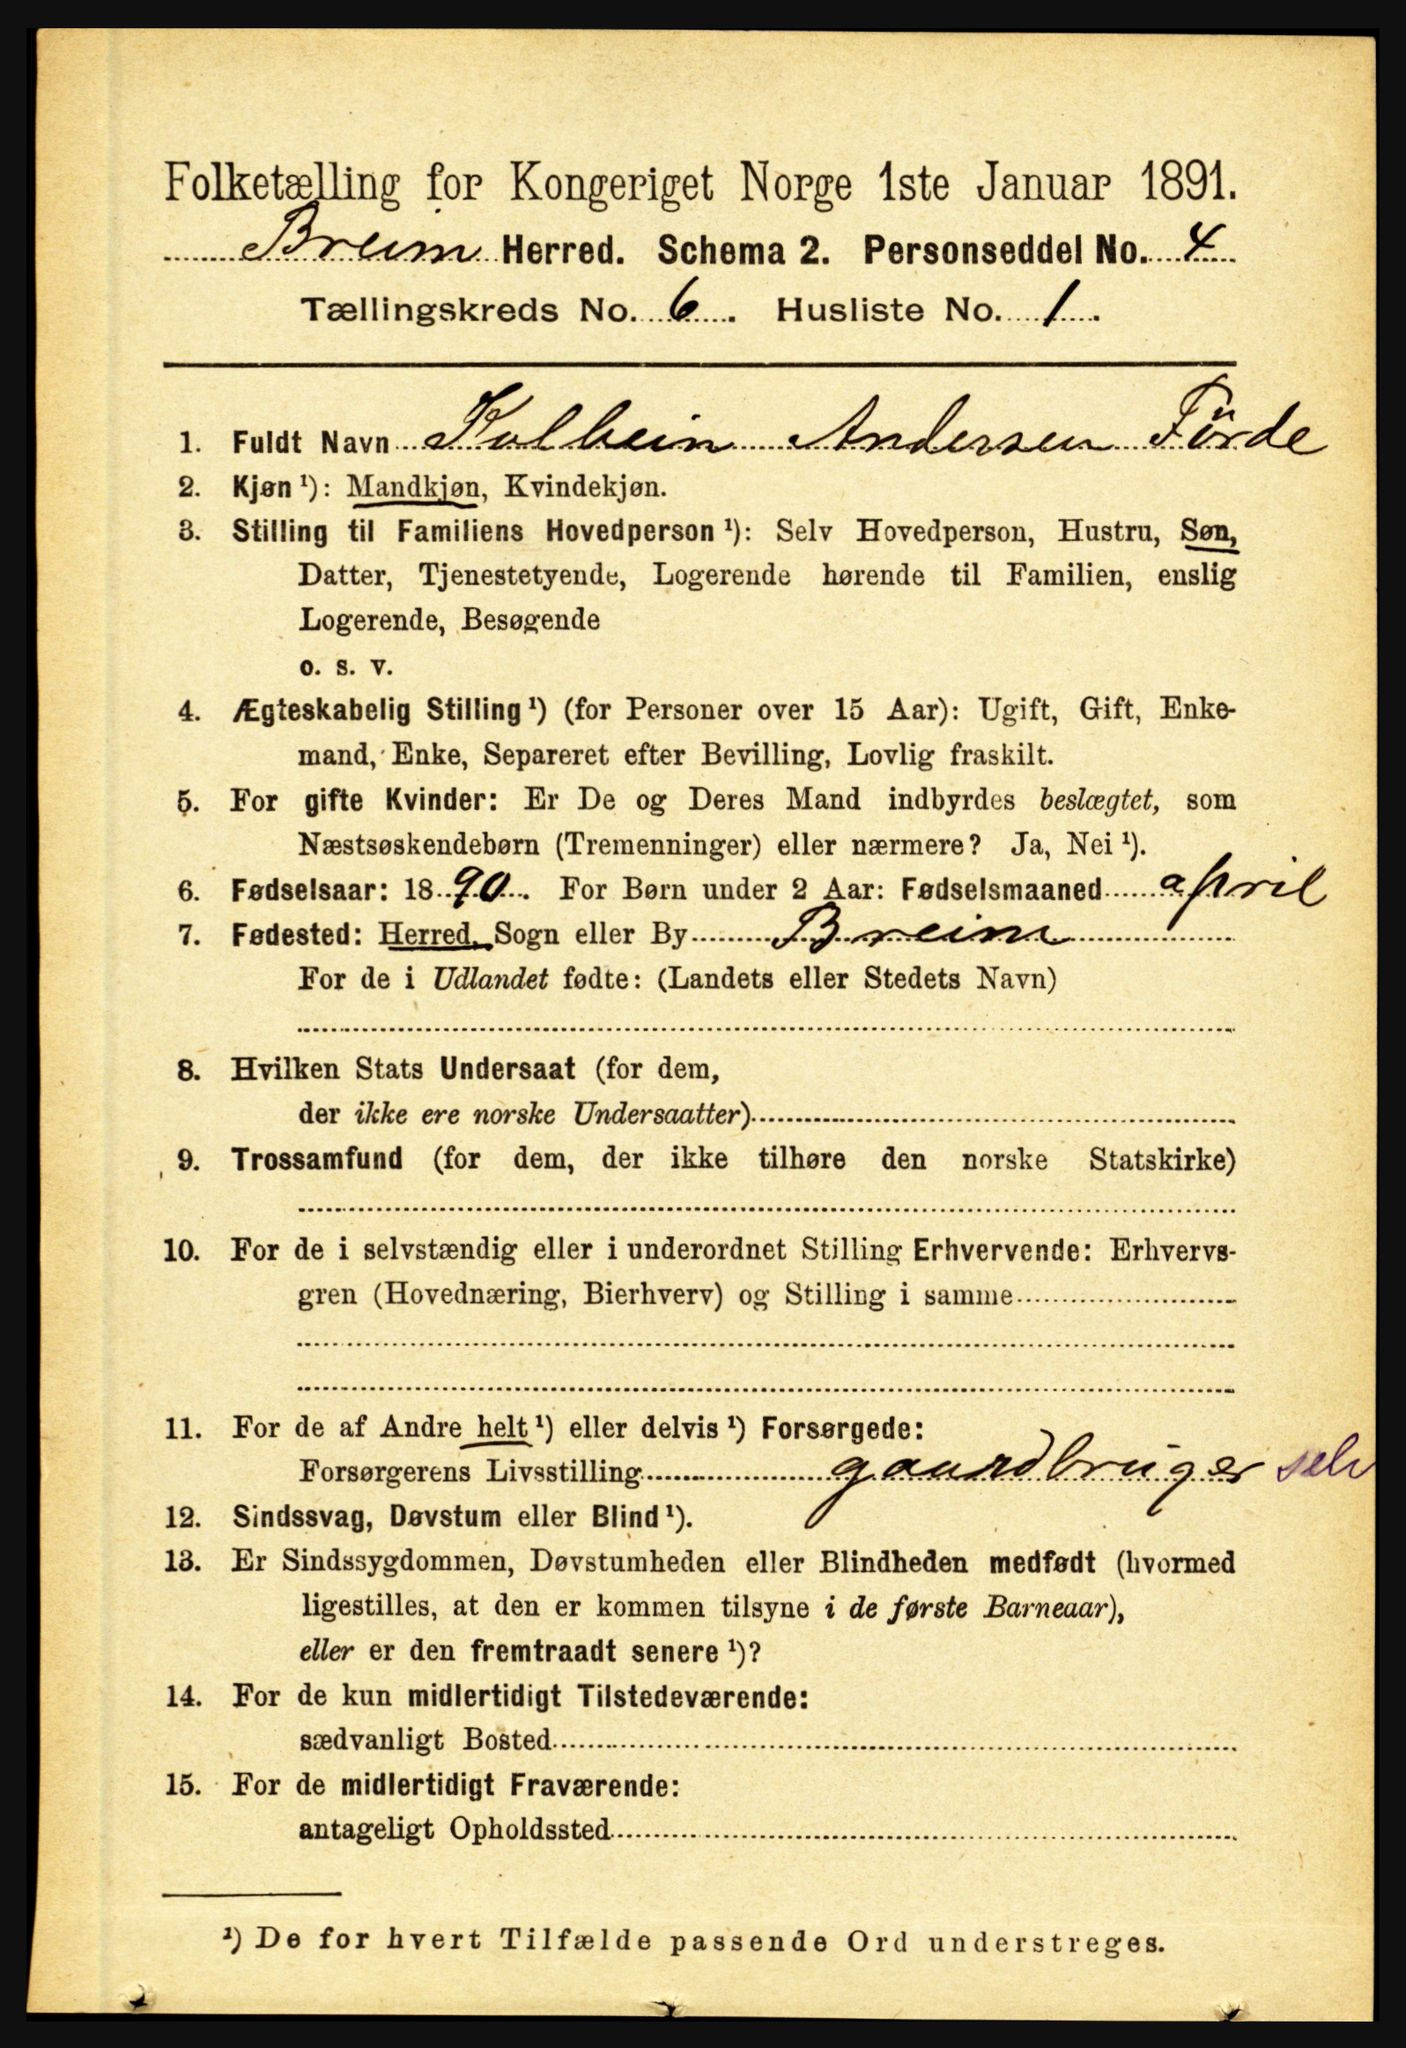 Folketælling for Kongeriget Norge 1ste Januar 1891.
Breim Herred. Schema 2. Personseddel No. 4
Tællingskreds No. 6. Husliste No. 1.
1. Fuldt Navn Kolbein Andersen Förde
2. Kjøn ¹): Mandkjøn, Kvindekjøn.
3. Stilling til Familiens Hovedperson ¹): Selv Hovedperson, Hustru, Søn,
Datter, Tjenestetyende, Logerende hørende til Familien, enslig
Logerende, Besøgende
o. s. v.
4. Ægteskabelig Stilling ¹) (for Personer over 15 Aar): Ugift, Gift, Enke-
mand, Enke, Separeret efter Bevilling, Lovlig fraskilt.
5. For gifte Kvinder: Er De og Deres Mand indbyrdes beslægtet, som
Næstsøskendebørn (Tremenninger) eller nærmere? Ja, Nei ¹).
6. Fødselsaar: 1890. For Børn under 2 Aar: Fødselsmaaned april
7. Fødested: Herred, Sogn eller By Breim
For de i Udlandet fødte: (Landets eller Stedets Navn)
8. Hvilken Stats Undersaat (for dem,
der ikke ere norske Undersaatter)
9. Trossamfund (for dem, der ikke tilhøre den norske Statskirke)
10. For de i selvstændig eller i underordnet Stilling Erhvervende: Erhvervs-
gren (Hovednæring, Bierhverv) og Stilling i samme
11. For de af Andre helt ¹) eller delvis ¹) Forsørgede:
Forsørgerens Livsstilling gaardbruger selv
12. Sindssvag, Døvstum eller Blind ¹).
13. Er Sindssygdommen, Døvstumheden eller Blindheden medfødt (hvormed
ligestilles, at den er kommen tilsyne i de første Barneaar),
eller er den fremtraadt senere ¹)?
14. For de kun midlertidigt Tilstedeværende:
sædvanligt Bosted
15. For de midlertidigt Fraværende:
antageligt Opholdssted
¹) De for hvert Tilfælde passende Ord understreges.